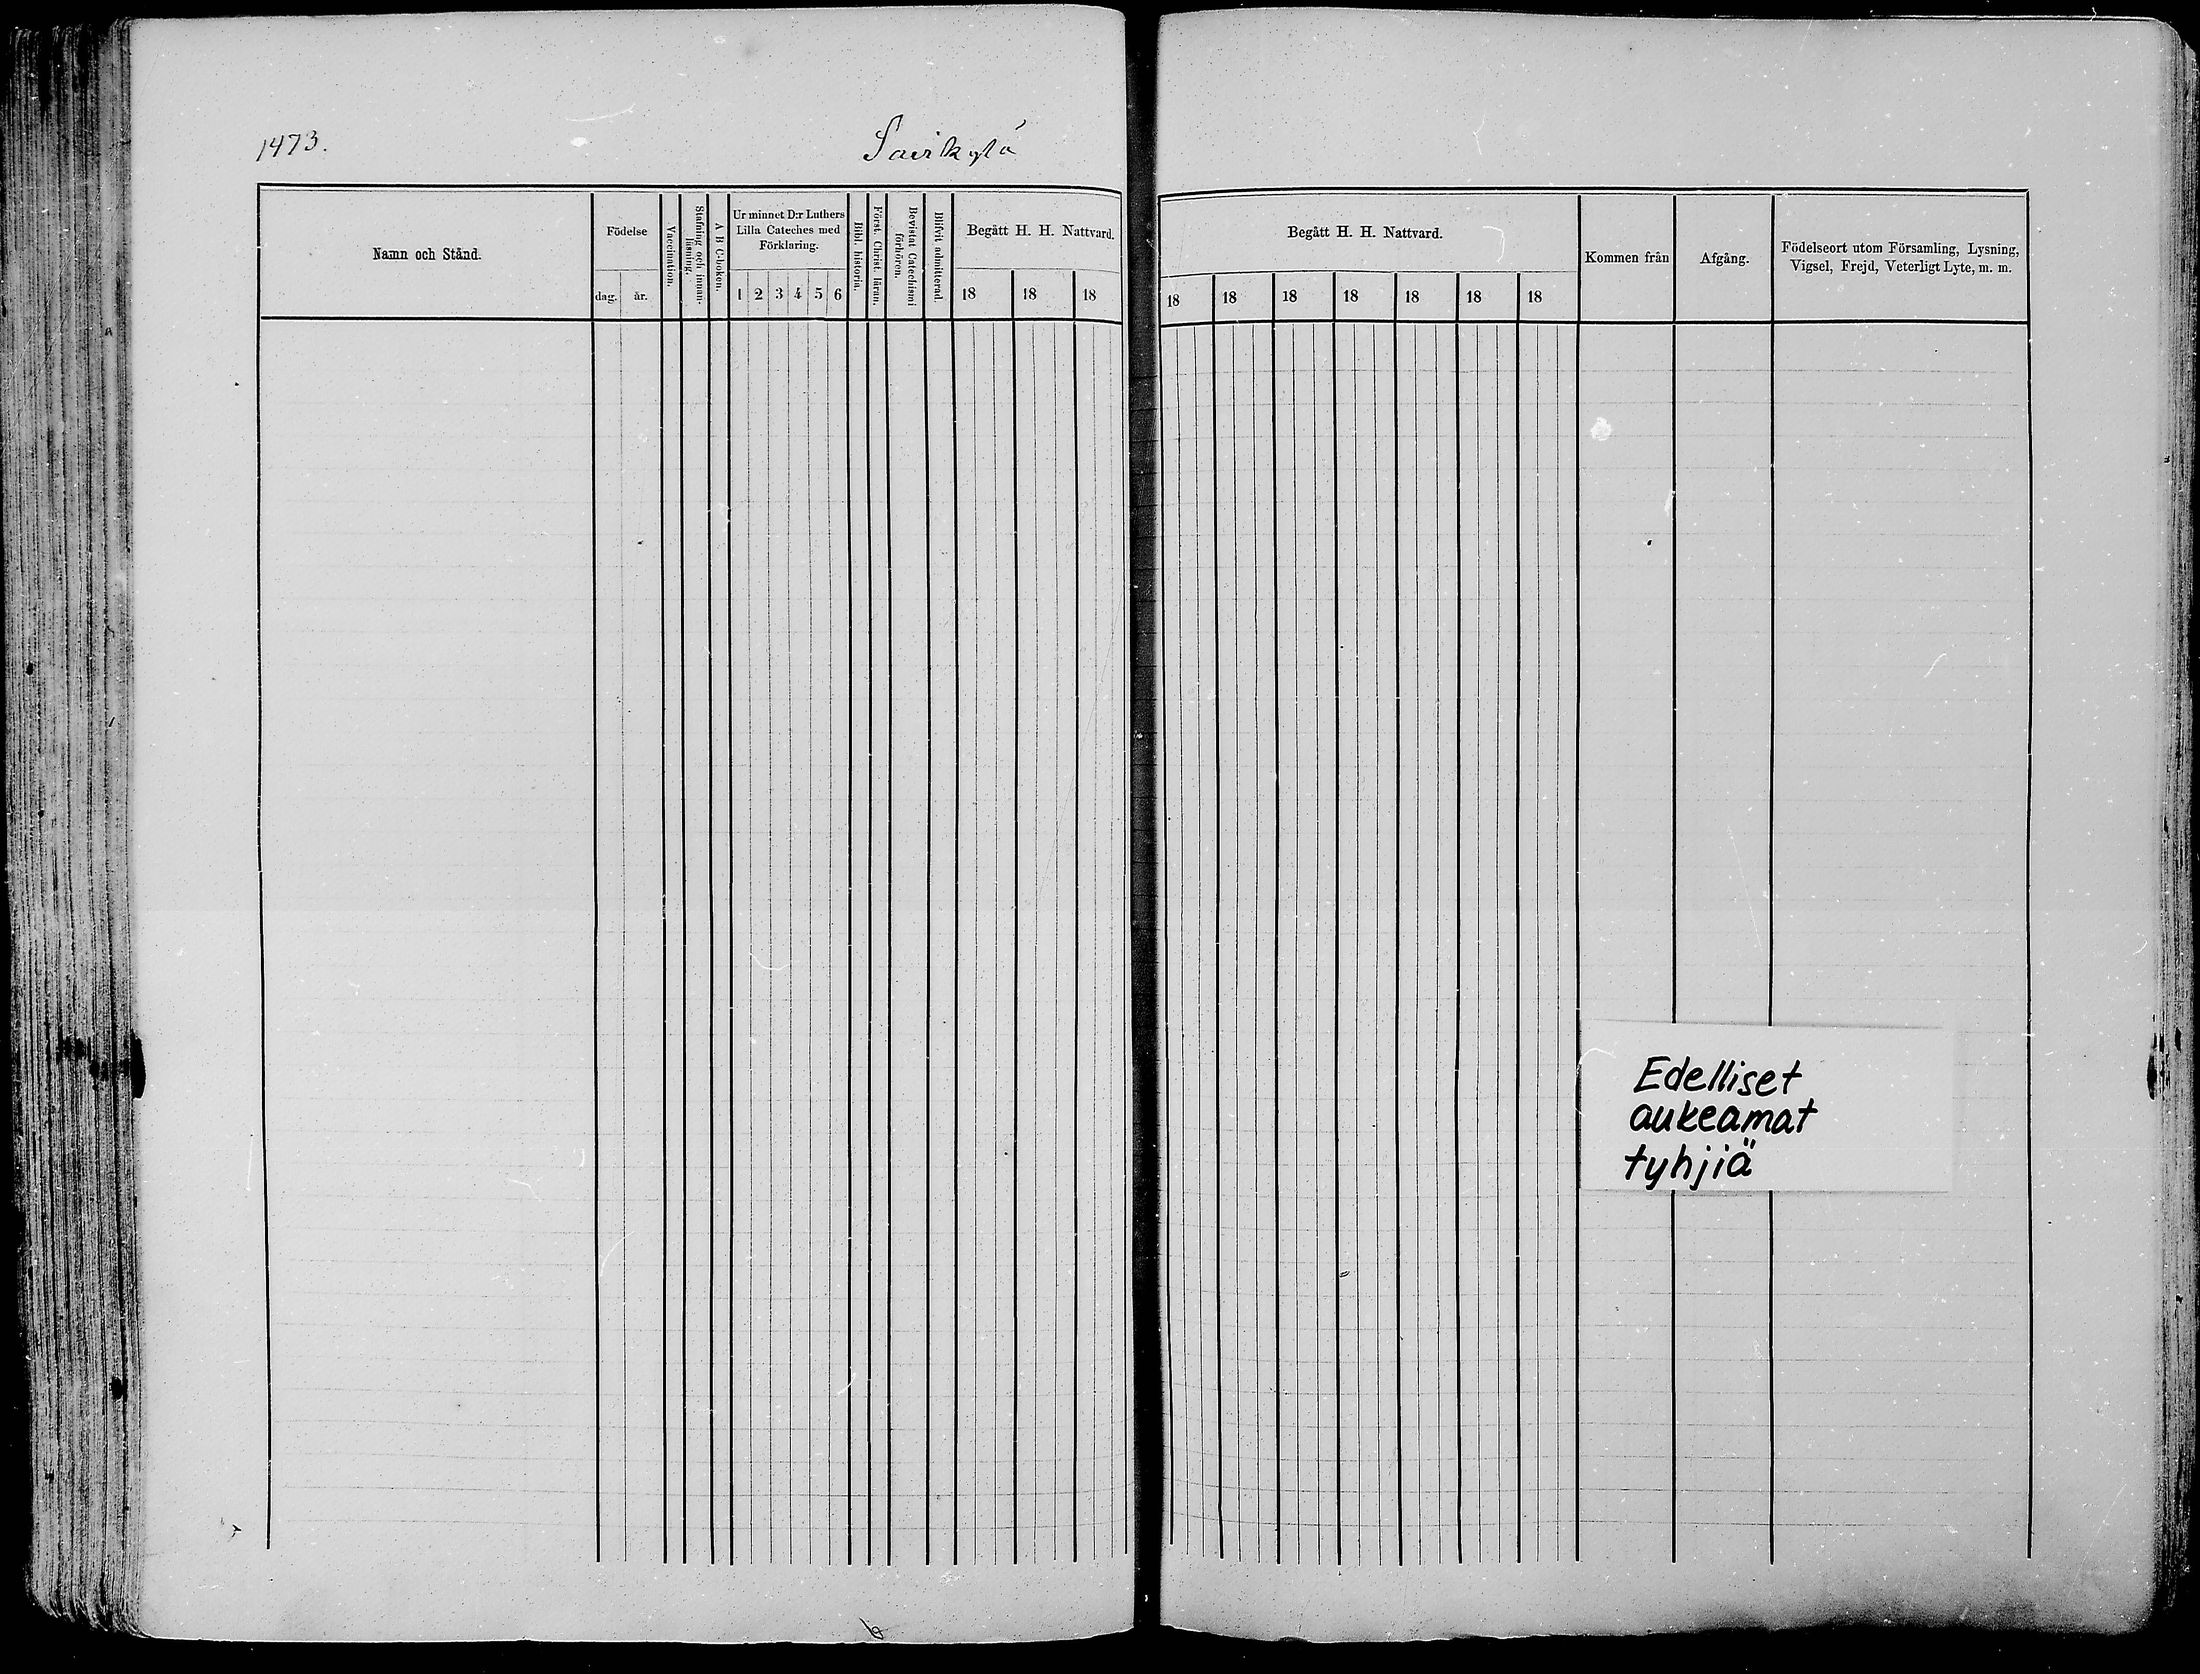 1473.
Savikylä
Namn och Stånd.
Födelse
dag.
år.
Vaccination.
Stafning och innan-
läsning.
A B C-boken.
Ur minnet D:r Luthers
Lilla Cateches med
Förklaring.
1 2 3 4 5 6
Bibl. historia.
Först. Christ. läran.
Bevistat Catechismi
förhören.
Blifvit admitterad.
Begått H. H. Nattvard.
18 18 18
Begått H. H. Nattvard.
18 18 18 18 18 18 18
Kommen från
Afgång.
Födelseort utom Församling, Lysning,
Vigsel, Frejd, Veterligt Lyte, m. m.
Edelliset
aukeamat
tyhjiä